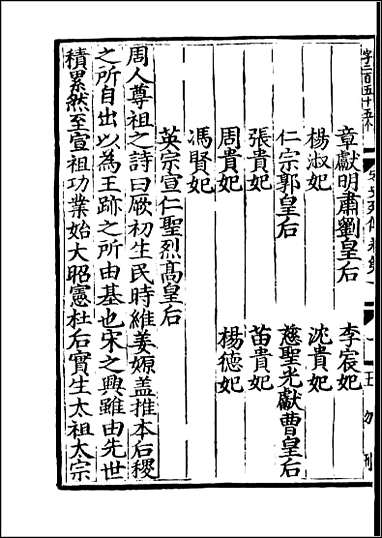 章獻明肅劉皇后　李宸妃
楊淑妃　沈貴妃
仁宗郭皇后　慈聖光獻曹皇后
張貴妃　苗貴妃
周貴妃　楊德妃
馮賢妃
英宗宣仁聖烈髙皇后
周人尊祖之詩曰厥初生民時維姜嫄盖推本后稷
之所自出以為王跡之所由基也宋之興雖由先世
積累然至宣祖功業始大昭憲杜后實生太祖太宗